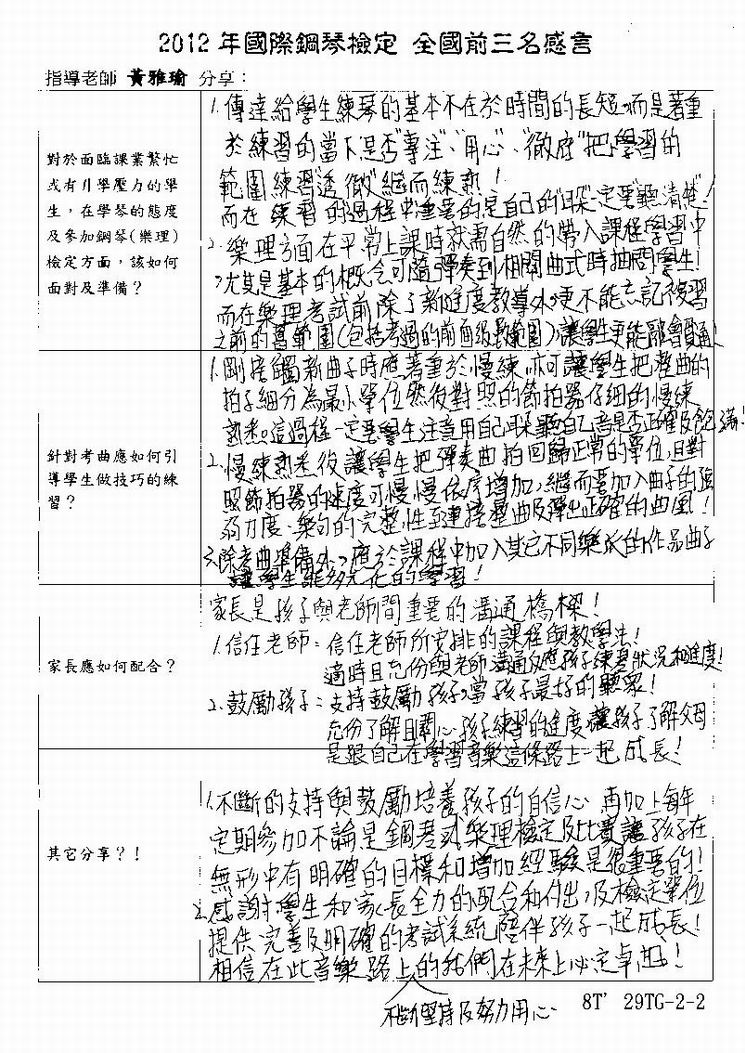 2012 年國際鋼琴檢定 全國前三名感言
指導老師 黃雅瑜 分享：
對於面臨課業繁忙
或有升學壓力的學
生，在學琴的態度
及參加鋼琴(樂理)
檢定方面，該如何
面對及準備？
1. 傳達給學生練琴的基本不在於時間的長短，而是著重
於練習的當下是否"專注"、"用心"、"徹底"把學習的
範圍練習"透徹"繼而練熟！
而在練習的過程中重要的是自己的"耳朵"一定要"聽清楚"！
2. 樂理方面在平常上課時就需自然的帶入課程學習中
，尤其是基本的概念可隨彈奏到相關曲式時抽問學生！
而在樂理考試前除了新進度教導外，更不能忘記複習
之前的舊範圍(包括考過的前面級數範圍)，讓學生更能融會貫通！
針對考曲應如何引
導學生做技巧的練
習？
1. 剛接觸新曲子時應著重於慢練亦可讓學生把整曲的
拍子細分為最小單位然後對照的節拍器仔細的慢練
熟悉。這過程一定要學生注意用自己耳朵聽自己音是否正確及飽滿！
2. 慢練熟悉後讓學生把彈奏曲拍回歸正常的單位，且對
照節拍器的速度可慢慢依序增加，繼而要加入曲子的強
弱力度、樂句的完整性至連接整曲及彈出正確的曲風！
3. 除考曲準備外，應於課程中加入其它不同樂派的作品曲子
讓學生能多元化的學習！
家長應如何配合？
家長是孩子與老師間重要的溝通橋樑！
1. 信任老師：信任老師所安排的課程與教學法！
適時且充份與老師溝通反應孩子練琴狀況和進度！
2. 鼓勵孩子：支持鼓勵孩子，當孩子最好的聽眾！
充份了解且關心孩子練習的進度，讓孩子了解父母
是跟自己在學習音樂這條路上一起成長！
其它分享？！
1. 不斷的支持與鼓勵培養孩子的自信心 再加上每年
定期參加不論是鋼琴或樂理檢定及比賽讓孩子在
無形中有明確的目標和增加經驗是很重要的！
2. 感謝學生和家長全力的配合和付出，及檢定單位
提供完善及明確的考試系統陪伴孩子一起成長！
相信在此音樂路上的我們在未來上必定卓越！
不斷堅持及努力用心
8T' 29TG-2-2